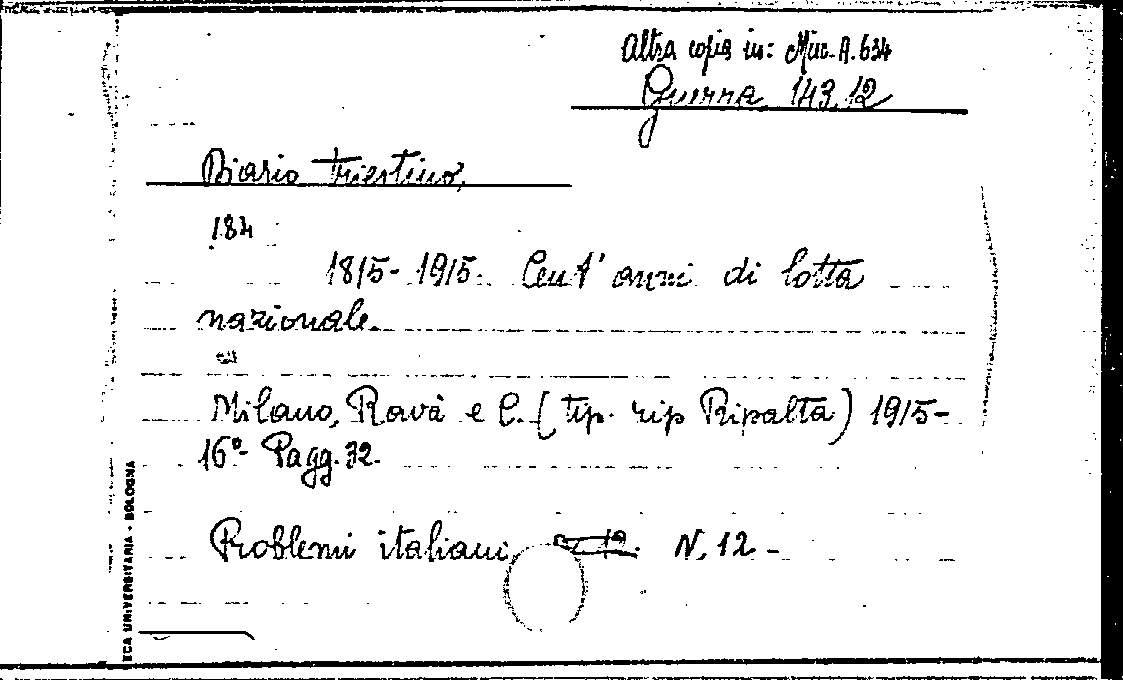 Altra copia in: Misc. A. 634
Guerra 143.12
Diario triestino,
184
1815-1915. Cent' anni di lotta
nazionale.
Milano, Ravà e C. (tip. rip Ripalta) 1915-
16º- Pagg. 32.
Problemi italiani, N. 12 -
ECA UNIVERSITARIA - BOLOGNA